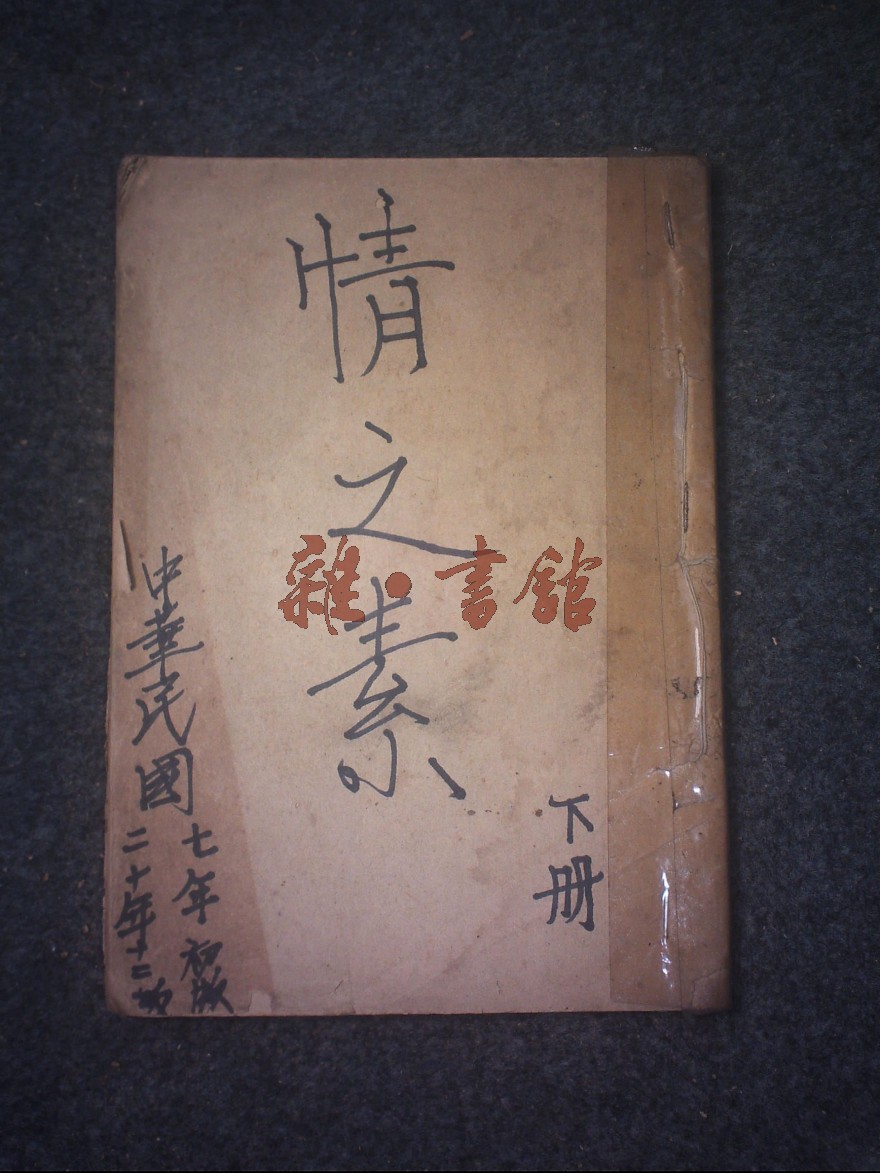 情之素
下册
中華民國
七年初版
二十年十二版
雜·書館